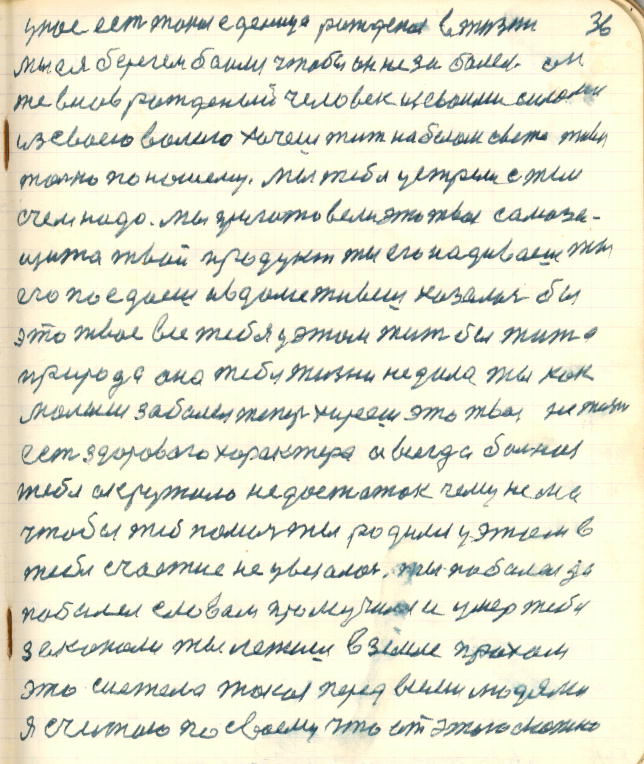 унас ест такая еденица рождена в жизни 36
мы ея берегем баили чтобы он не за болел. он
же внов рожденый человек и своими силами
из своего волию хочеш жит на белом свете живи
толко по нашему. мы тебя устрели с тем
с чем надо. мы приготовели это твоя самоза-
щита твой продукт ты его надиваеш ты
его поедаеш и вдоме живеш казалос бы
это твое все тебя у этом жит бы жит а
природа она тебя жизни недала ты как
малыш заболел типер хирееш это твоя не жизн
ест здорового характера а всегда болная
тебя окружило недостаток чему нема
чтобы теб помоч ты родиля у этом в
тебя счастие не увезалос. ты поболел да
поболел словам промучился и умер тебя
закопали ты лежиш в земле прахом
это система такая перед всеми людями
я считаю по своему что от этого можно